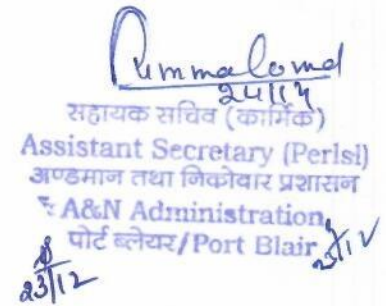 सहायक सचिव (कार्मिक)
Assistant Secretary (Perlsl)
अण्डमान तथा निकोबार प्रशासन
A&N Administration
पोर्ट ब्लेयर/Port Blair
23/12